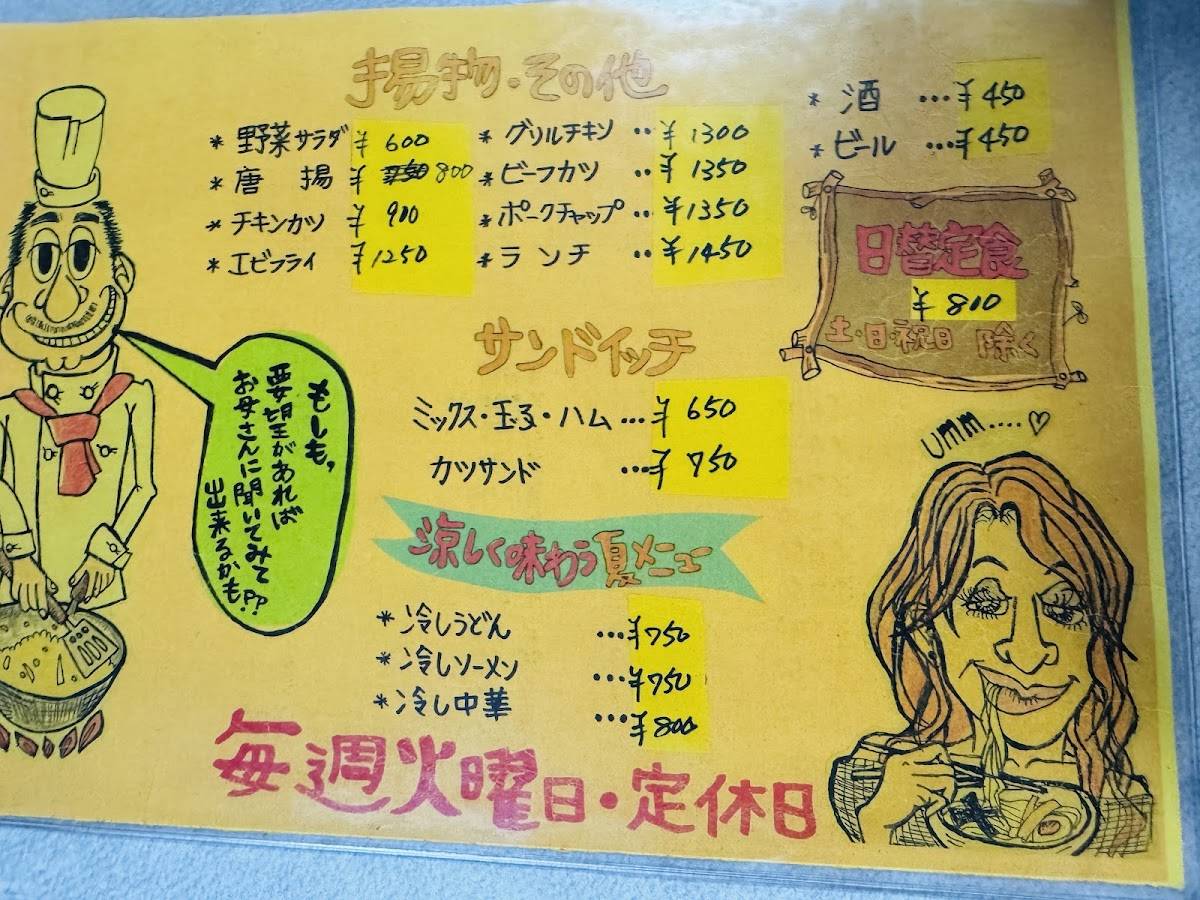 揚物・その他
* 野菜サラダ ¥ 600
* 唐揚 ¥ 800
* チキンカツ ¥ 900
* エビフライ ¥1250
* グリルチキン ‥ ¥ 1300
* ビーフカツ ‥ ¥ 1350
* ポークチャップ ‥ ¥1350
* ランチ ‥ ¥1450
* 酒 …¥450
* ビール …¥450
日替定食
¥800
土・日・祝日 除く
サンドイッチ
ミックス・玉子・ハム…¥ 650
カツサンド …¥ 750
もしも、
要望があれば
お母さんに聞いてみて
出来るかも??
涼しく味わう夏メニュー
* 冷しうどん …¥750
* 冷しソーメン …¥750
* 冷し中華 …¥800
umm....♡
毎週火曜日・定休日